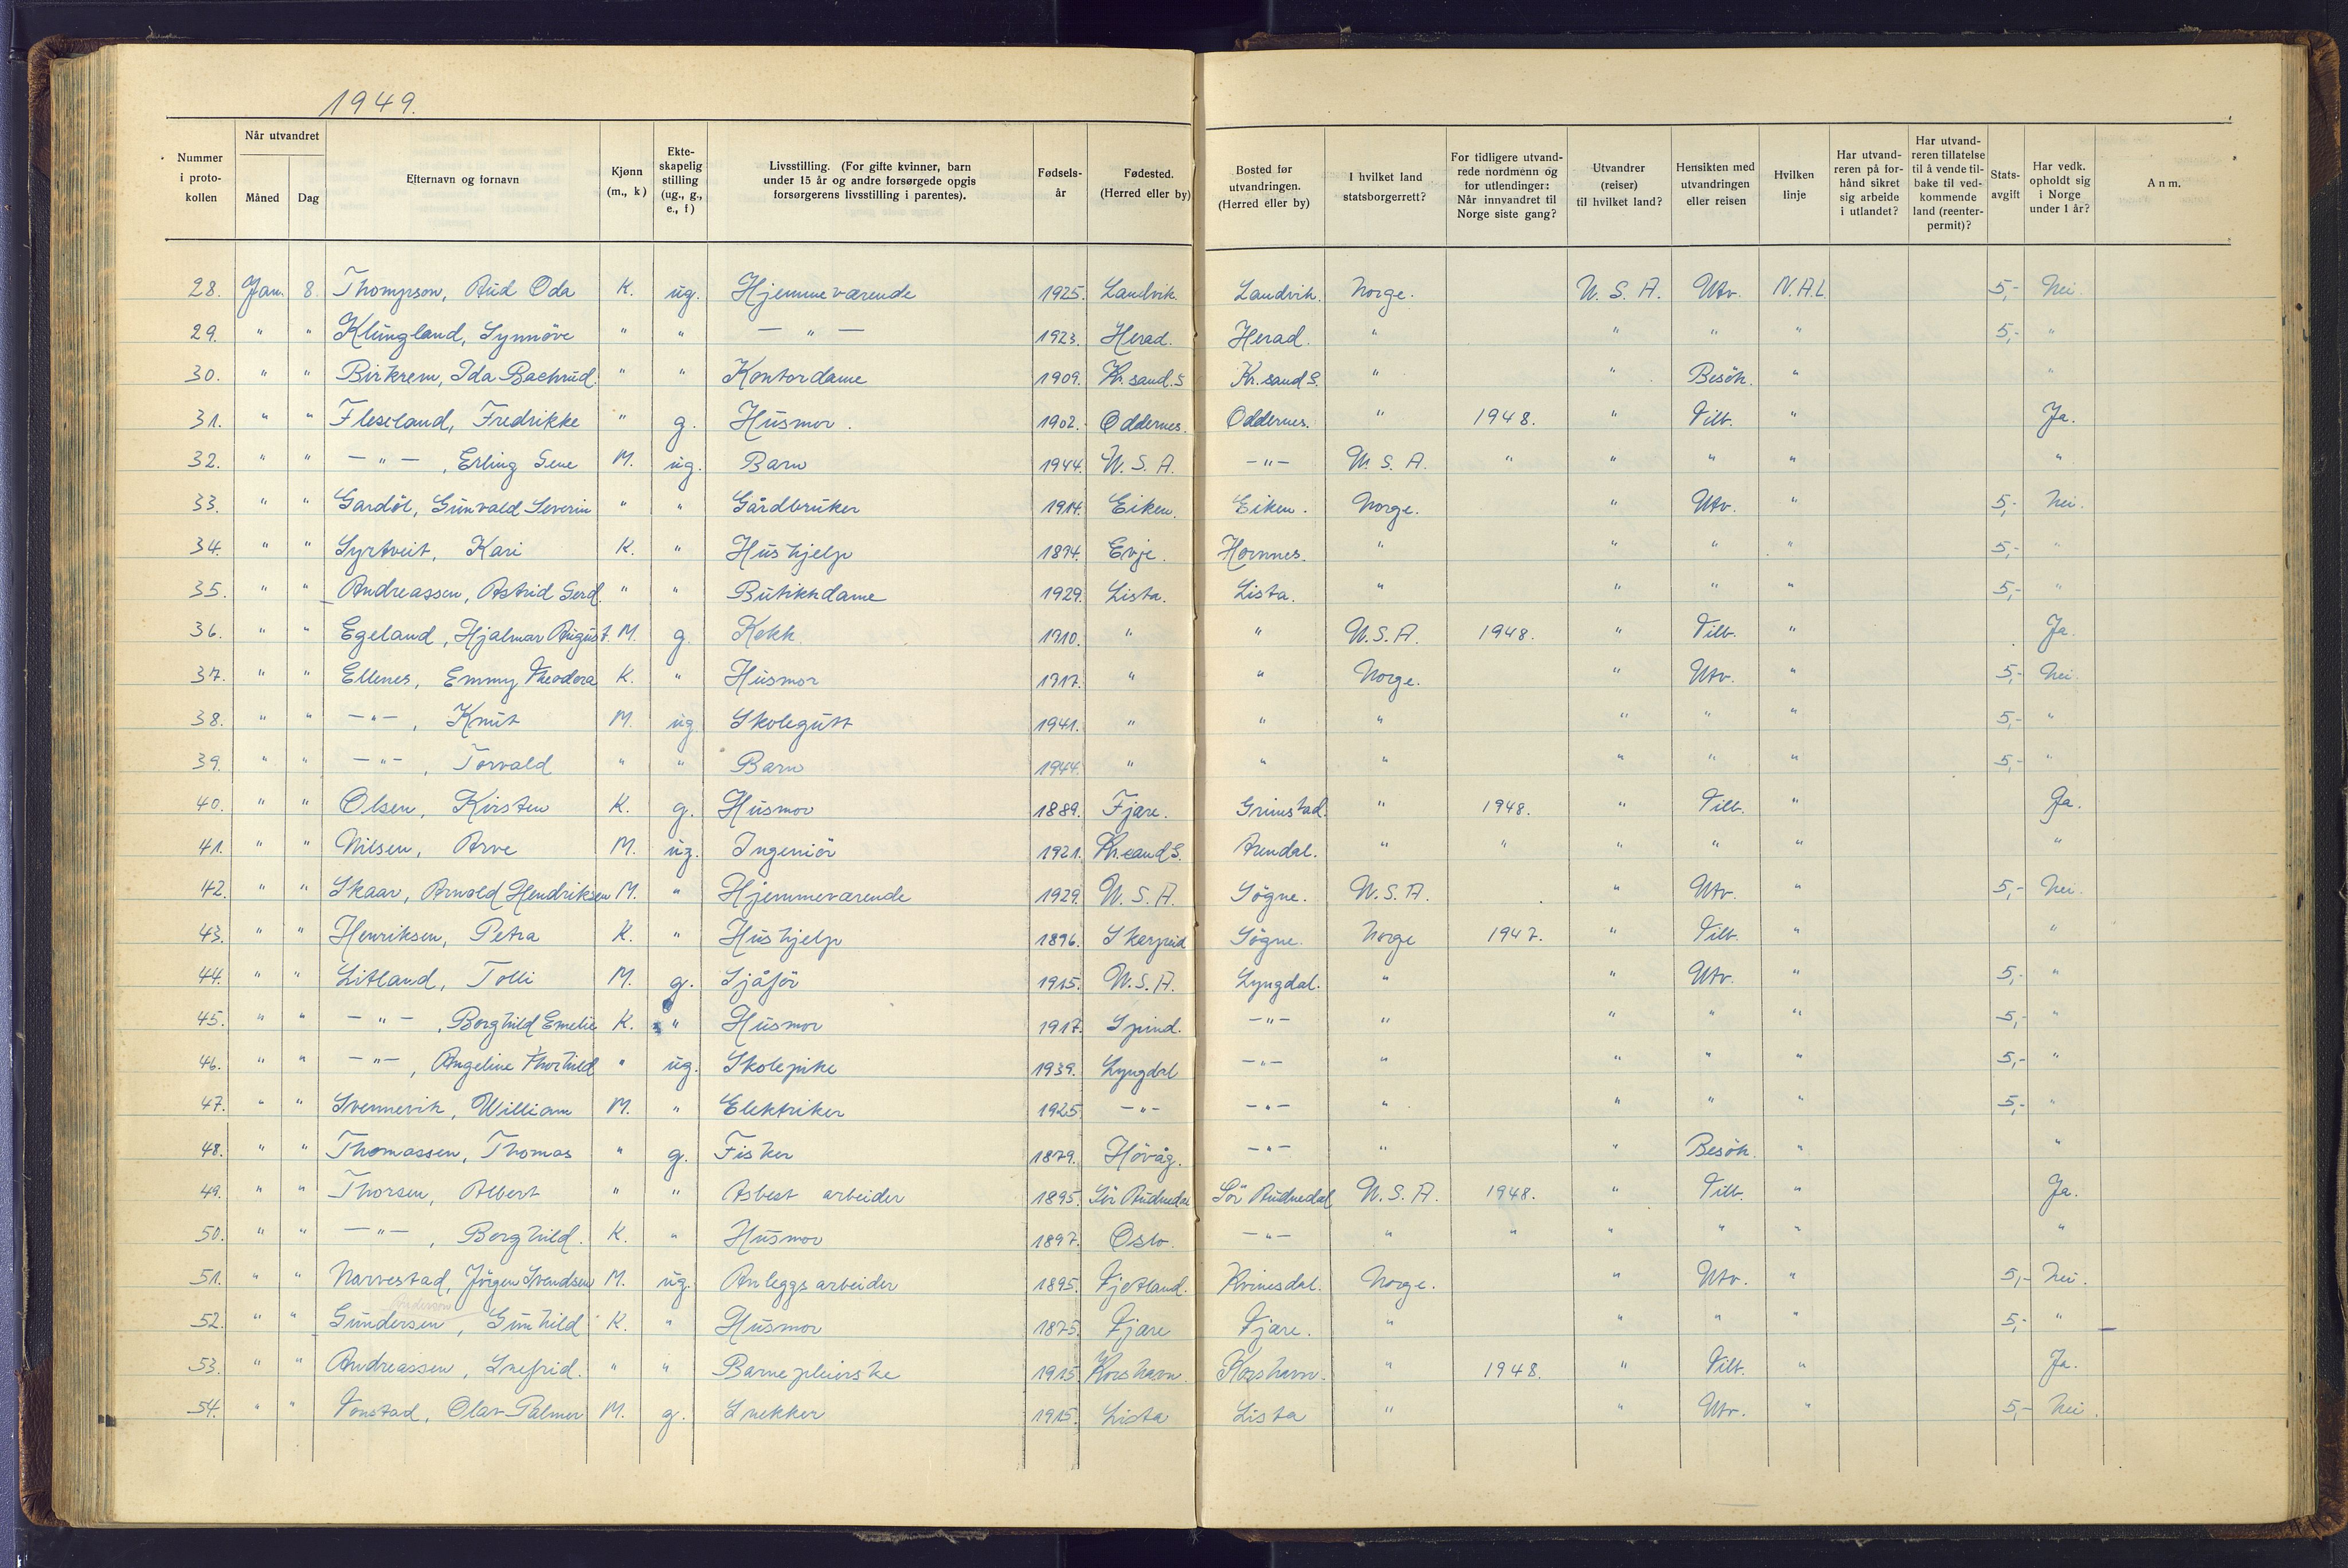 1949.
Nummer i proto- kollen | Når utvandret | Måned | Dag | Efternavn og fornavn | Kjønn (m., k) | Ekte- skapelig stilling (ug., g., e., f) | Livsstilling. (For gifte kvinner, barn under 15 år og andre forsørgede opgis forsørgerens livsstilling i parentes). | Fødsels- år | Fødested. (Herred eller by) | Bosted før utvandringen. (Herred eller by) | I hvilket land statsborgerrett? | For tidligere utvand- rede nordmenn og for utlendinger: Når innvandret til Norge siste gang? | Utvandrer (reiser) til hvilket land? | Hensikten med utvandringen eller reisen | Hvilken linje | Har utvand- reren på for- hånd sikret sig arbeide i utlandet? | Har utvand- reren tillatelse til å vende til- bake til ved- kommende land (reenter- permit)? | Stats- avgift | Har vedk. opholdt sig i Norge under 1 år? | Anm.
28. Jan. 8. Thompson, Aud Oda K. ug. Hjemmeværende 1925. Landvik. Landvik. Norge. U. S. A. Utv. N.A.L. 5,- Nei.
29. " " Klungland, Synnöve " " — " — 1923. Herad. Herad. " " " " 5,- "
30. " " Birkrem, Ida " " Kontordame 1909. Kr.sand.S Kr.sand S. " " Besök. " "
31. " " Fleseland, Fredrikke " g. Husmor. 1902. Oddernes. Oddernes. " 1948. " Tilb. " Ja.
32. " " — " — , Erling Gene M. ug. Barn 1944. U. S. A. — " — U. S. A. " " " " "
33. " " Gardöl, Gunvald Severin " " Gårdbruker 1914. Eiken. Eiken. Norge. " Utv. " 5,- Nei.
34. " " Syrtveit, Kari K. " Hushjelp 1894. Evje. Hornnes. " " " " 5,- "
35. " " Andreassen, Astrid Gerd. " " Butikkdame 1929. Lista. Lista. " " " " 5,- "
36. " " Egeland, Hjalmar August. M. g. Kokk 1910. " " U.S.A. 1948. " Tilb. " Ja.
37. " " Ellenes, Emmy Theodora K. " Husmor 1917. " " Norge. " Utv. " 5,- Nei.
38. " " — " — , Knut M. ug Skolegutt 1941. " " " " " " 5,- "
39. " " — " — , Torvald " " Barn 1944. " " " " " " 5,- "
40. " " Olsen, Kirsten K. g. Husmor 1889. Fjære. Grimstad. " 1948. " Tilb. " Ja.
41. " " Nilsen, Arve M. ug. Ingeniör 1921. Kr.sand S. Arendal. " " " " " "
42. " " Skaar, Arnold Hendriksen M. " Hjemmeværende 1929. U. S. A. Sögne. U.S.A. " Utv. " 5,- Nei.
43. " " Henriksen, Petra K. " Hushjelp 1896. Sögne. Norge 1947. " Tilb. " "
44. " " Litland, Tolli M. g. Sjåför 1915. U.S.A. Lyngdal. " " Utv. " 5,- "
45. " " — " — , Borghild Emelie K. " Husmor 1917. Spind. — " — " " " " 5,- "
46. " " — " — , Angeline Thorhild " ug. Skolepike 1939. Lyngdal — " — " " " " 5,- "
47. " " Svennevik, William M. " Elektriker 1925 — " — — " — " " " " 5,- "
48. " " Thomassen, Thomas " g. Fisker 1879. Hövåg. — " — " " Besök. " "
49. " " Thorsen, Albert " " Asbest arbeider 1895. Sör Audnedal Sör Audnedal U. S. A. 1948. " Tilb. " Ja.
50. " " — " — , Borghild. K. " Husmor 1897. Oslo. — " — " " " " " "
51. " " Narvestad, Jörgen Svendsen M. ug. Anleggsarbeider 1895. Fjotland. Kvinesdal. Norge. " Utv. " 5,- Nei.
Anderson
52. " " Gundersen, Gunhild K. " Husmor 1875. Fjære Fjære. " " " " 5,- "
53. " " Andreassen, Snefrid. " " Barnepleierske 1915. Korshavn. Korshavn. " 1948. " Tilb. " Ja.
54. " " Vonstad, Olav Palmer M. g. Snekker 1915. Lista Lista " " Utv. " 5,- Nei.